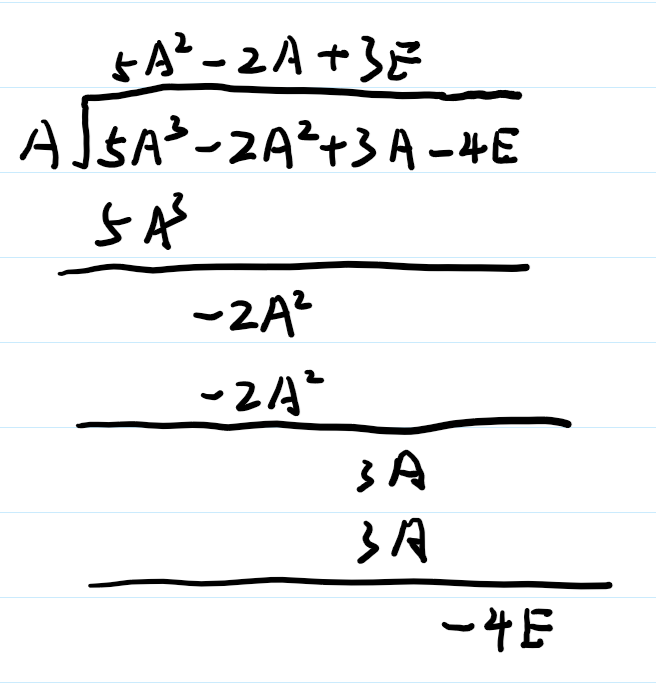 5A² - 2A + 3E
A 5A³ - 2A² + 3A - 4E
5A³
-2A²
-2A²
3A
3A
-4E